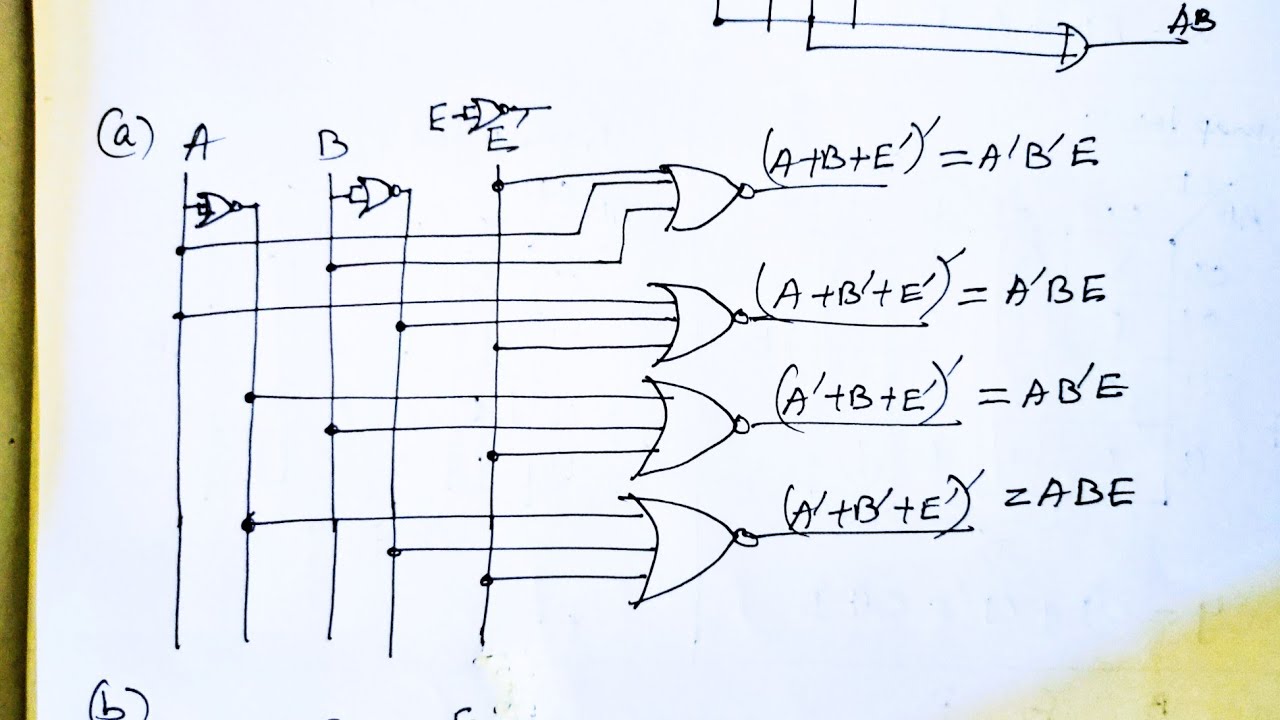 AB
(a) A B E E'
(A+B+E')' = A'B'E
(A+B'+E')' = A'BE
(A'+B+E')' = AB'E
(A'+B'+E')' = ABE
(b)